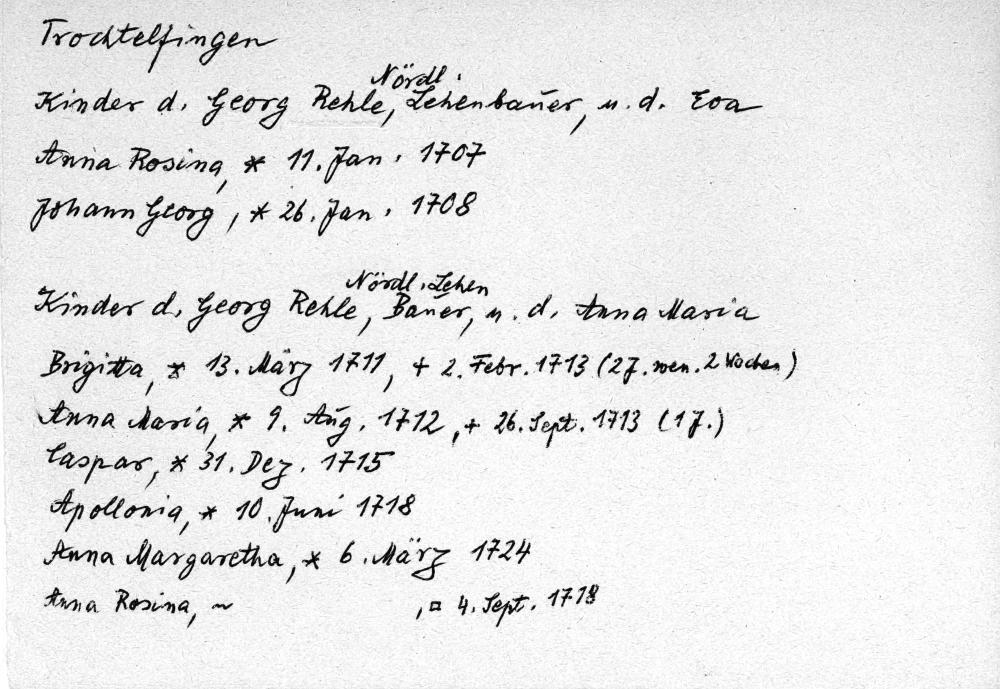 Trochtelfingen
Nördl.
Kinder d. Georg Rehle, Lehenbaŭer, u. d. Eva
Anna Rosina, * 11. Jan. 1707
Johann Georg, * 26. Jan. 1708
Nördl. Lehen
Kinder d. Georg Rehle, Baŭer, u. d. Anna Maria
Brigitta, * 13. März 1711, + 2. Febr. 1713 (2 J. wen. 2 Wochen)
Anna Maria, * 9. Aŭg. 1712, + 26. Sept. 1713 (1 J.)
Caspar, * 31. Dez. 1715
Apollonia, * 10. Juni 1718
Anna Margaretha, * 6. März 1724
Anna Rosina, ~ , ▭ 4. Sept. 1718